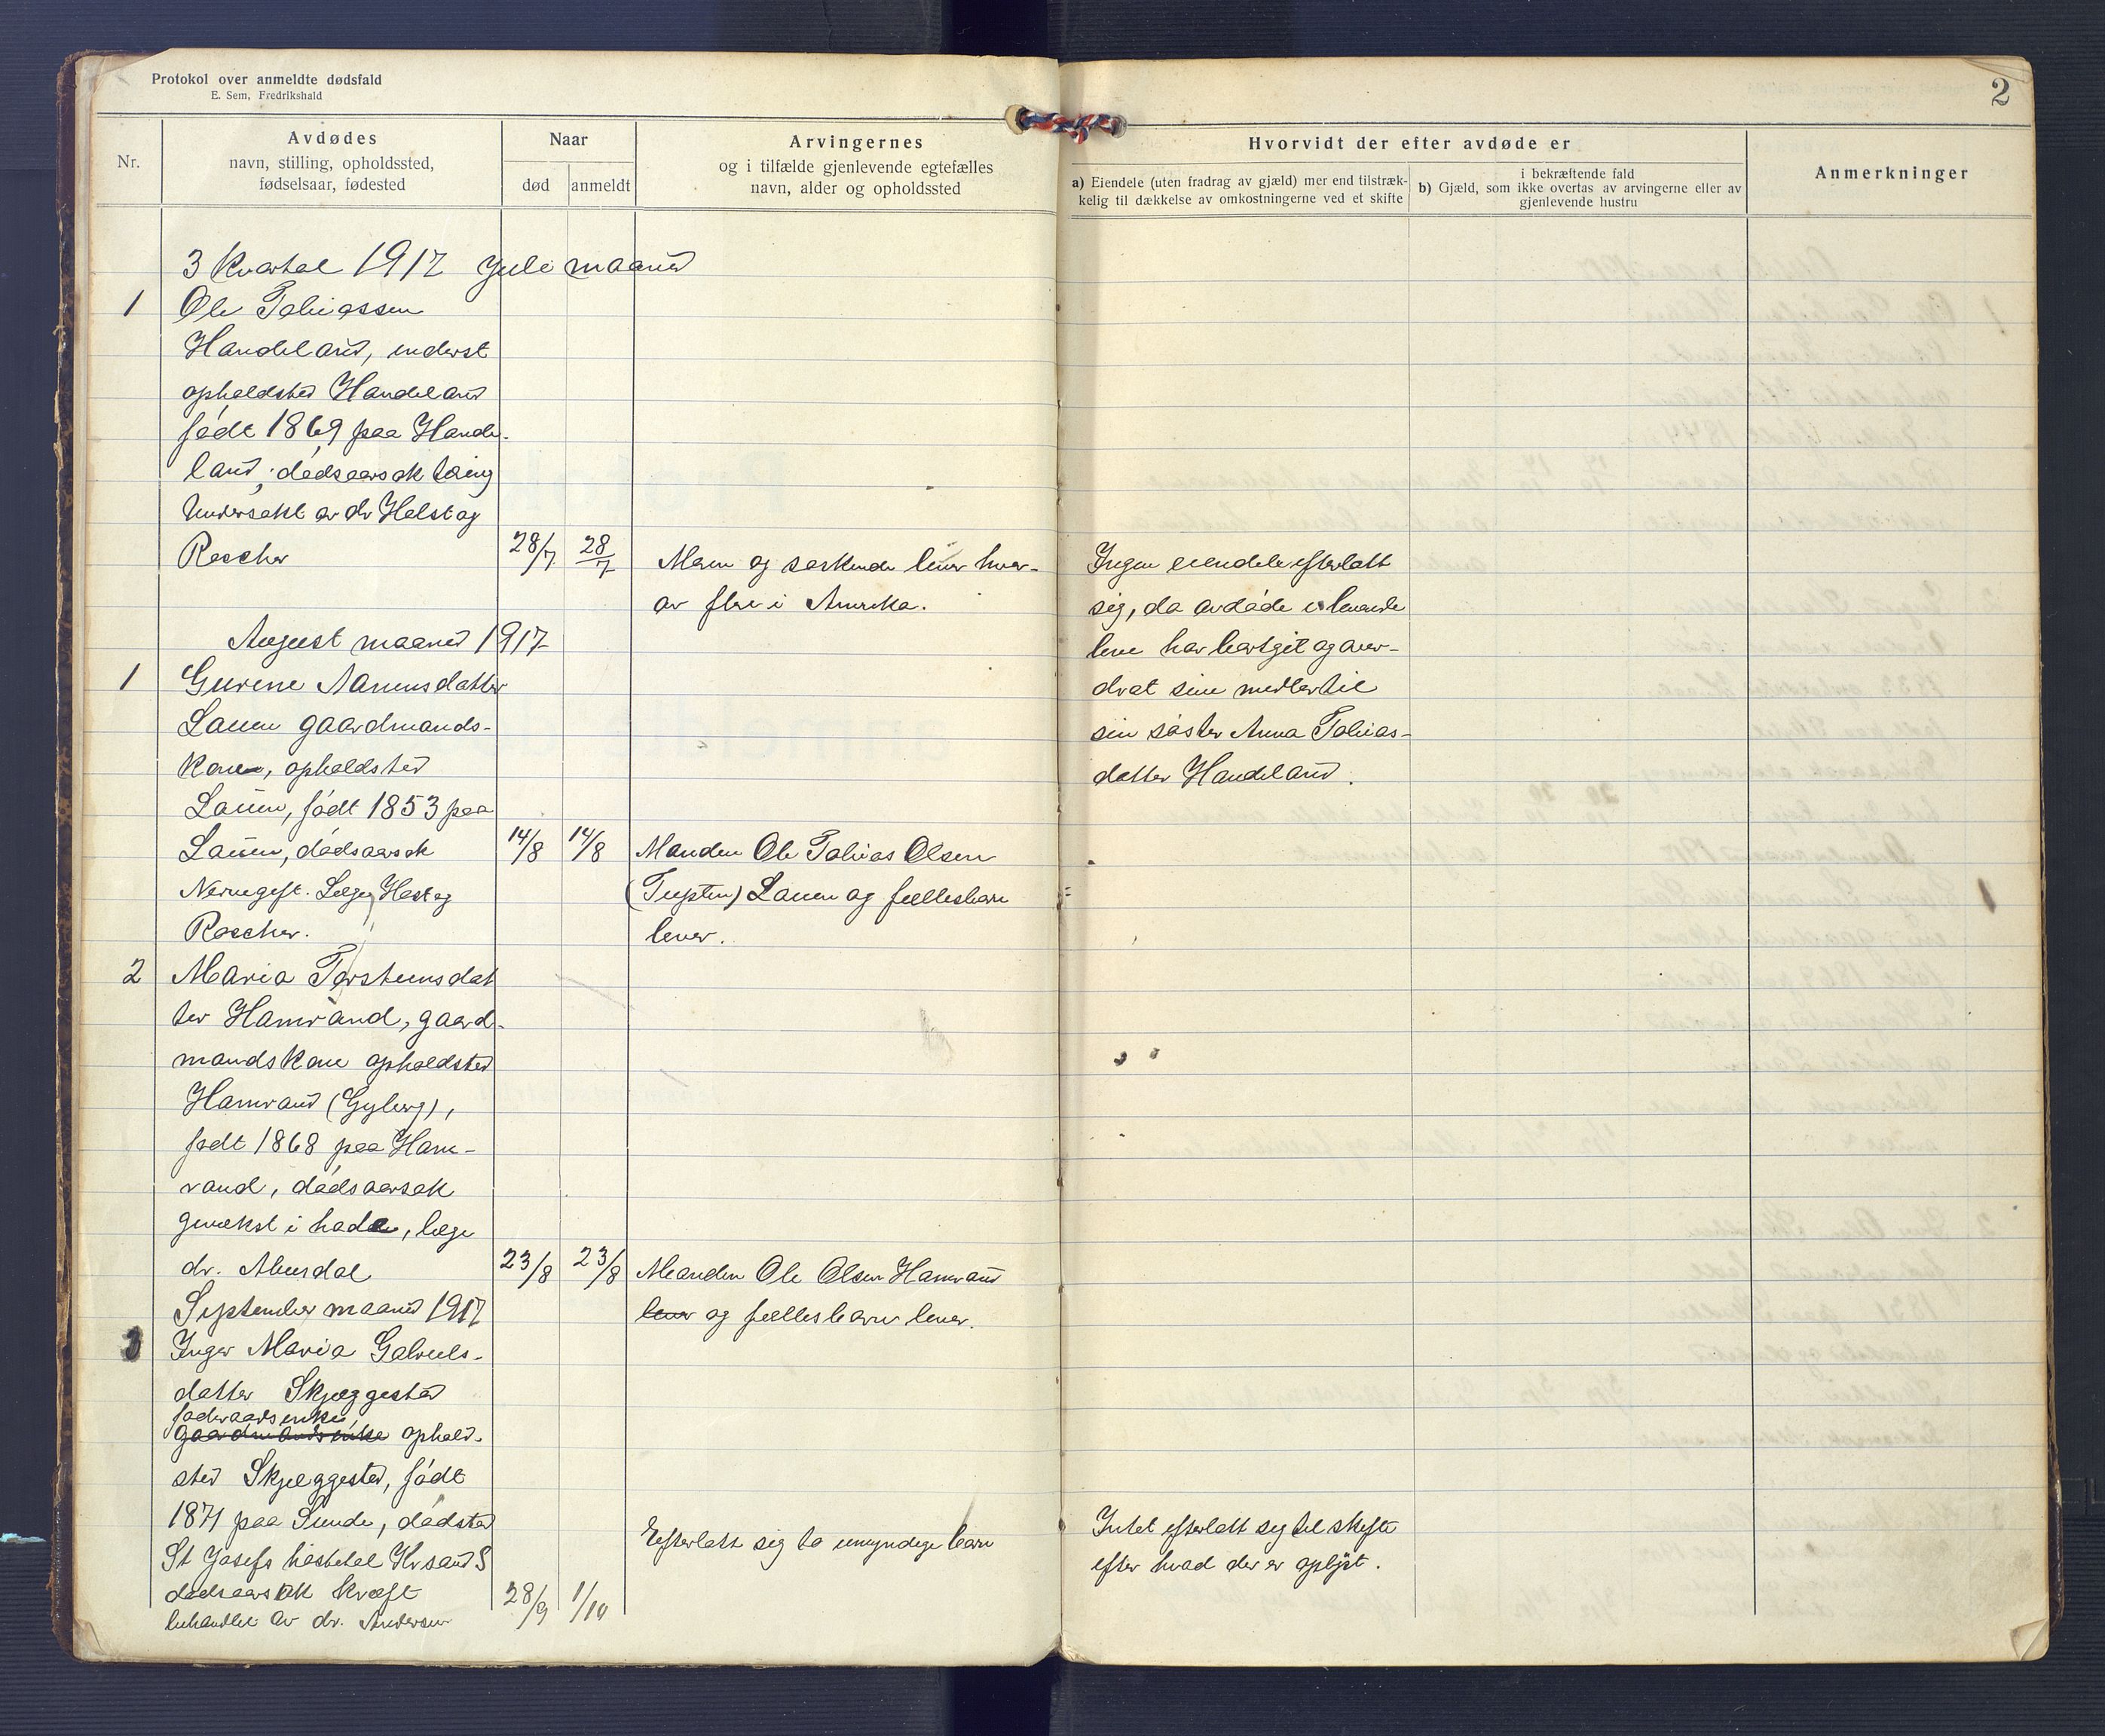 Protokol over anmeldte dødsfald
E. Sem, Fredrikshald
2
Nr.
Avdødes
navn, stilling, opholdssted,
fødselsaar, fødested
Naar
død
anmeldt
Arvingernes
og i tilfælde gjenlevende egtefælles
navn, alder og opholdssted
Hvorvidt der efter avdøde er
a) Eiendele (uten fradrag av gjæld) mer end tilstræk-
kelig til dækkelse av omkostningerne ved et skifte
i bekræftende fald
b) Gjæld, som ikke overtas av arvingerne eller av
gjenlevende hustru
Anmerkninger
3 Kvartal 1917 Juli maaned
1 Ole Tobiassen
Handeland, inderst
opholdsted Handeland
født 1869 paa Hande-
land; dødsaarsak tæring
Undersøkt av dr Holst og
Roscher 28/7 28/7
Moren og søskende lever hvor-
av flere i Amerika.
Ingen eiendele efterlatt
sig, da avdøde i levende
live har bortgit og over-
drat sine midler til
sin søster Anna Tobias-
datter Handeland.
August maaned 1917
1 Gurine Aanensdatter
Lauen gaardmands-
kone, opholdsted
Lauen, født 1853 paa
Lauen, dødsaarsak 14/8 14/8
Nervegift. Læge Holst og
Roscher.
Manden Ole Tobias Olsen
Lauen og fællesbarn
lever.
2 Maria Torsteinsdat
ter Hamrand, gaard-
mandskone opholdsted
Hamrand (Gyberg),
født 1868 paa Ham-
rand, dødsaarsak
, læge
dr. 23/8 23/8
Manden Ole Olsen Hamrand
lever og fællesbarn lever.
September maaned 1917
Inger Maria Gabriels-
datter Skjæggestad
føderaadsenke
gaardmandsenke ophold-
sted Skjæggestad, født
1871 paa Sunde, dødsted
St Josefs hospital Krsand S
dødsaarsak kræft 28/9 1/10
behandlet av dr. Andersen
Efterlatt sig to umyndige barn
Intet efterlatt sig til skifte
efter hvad der er oplyst.